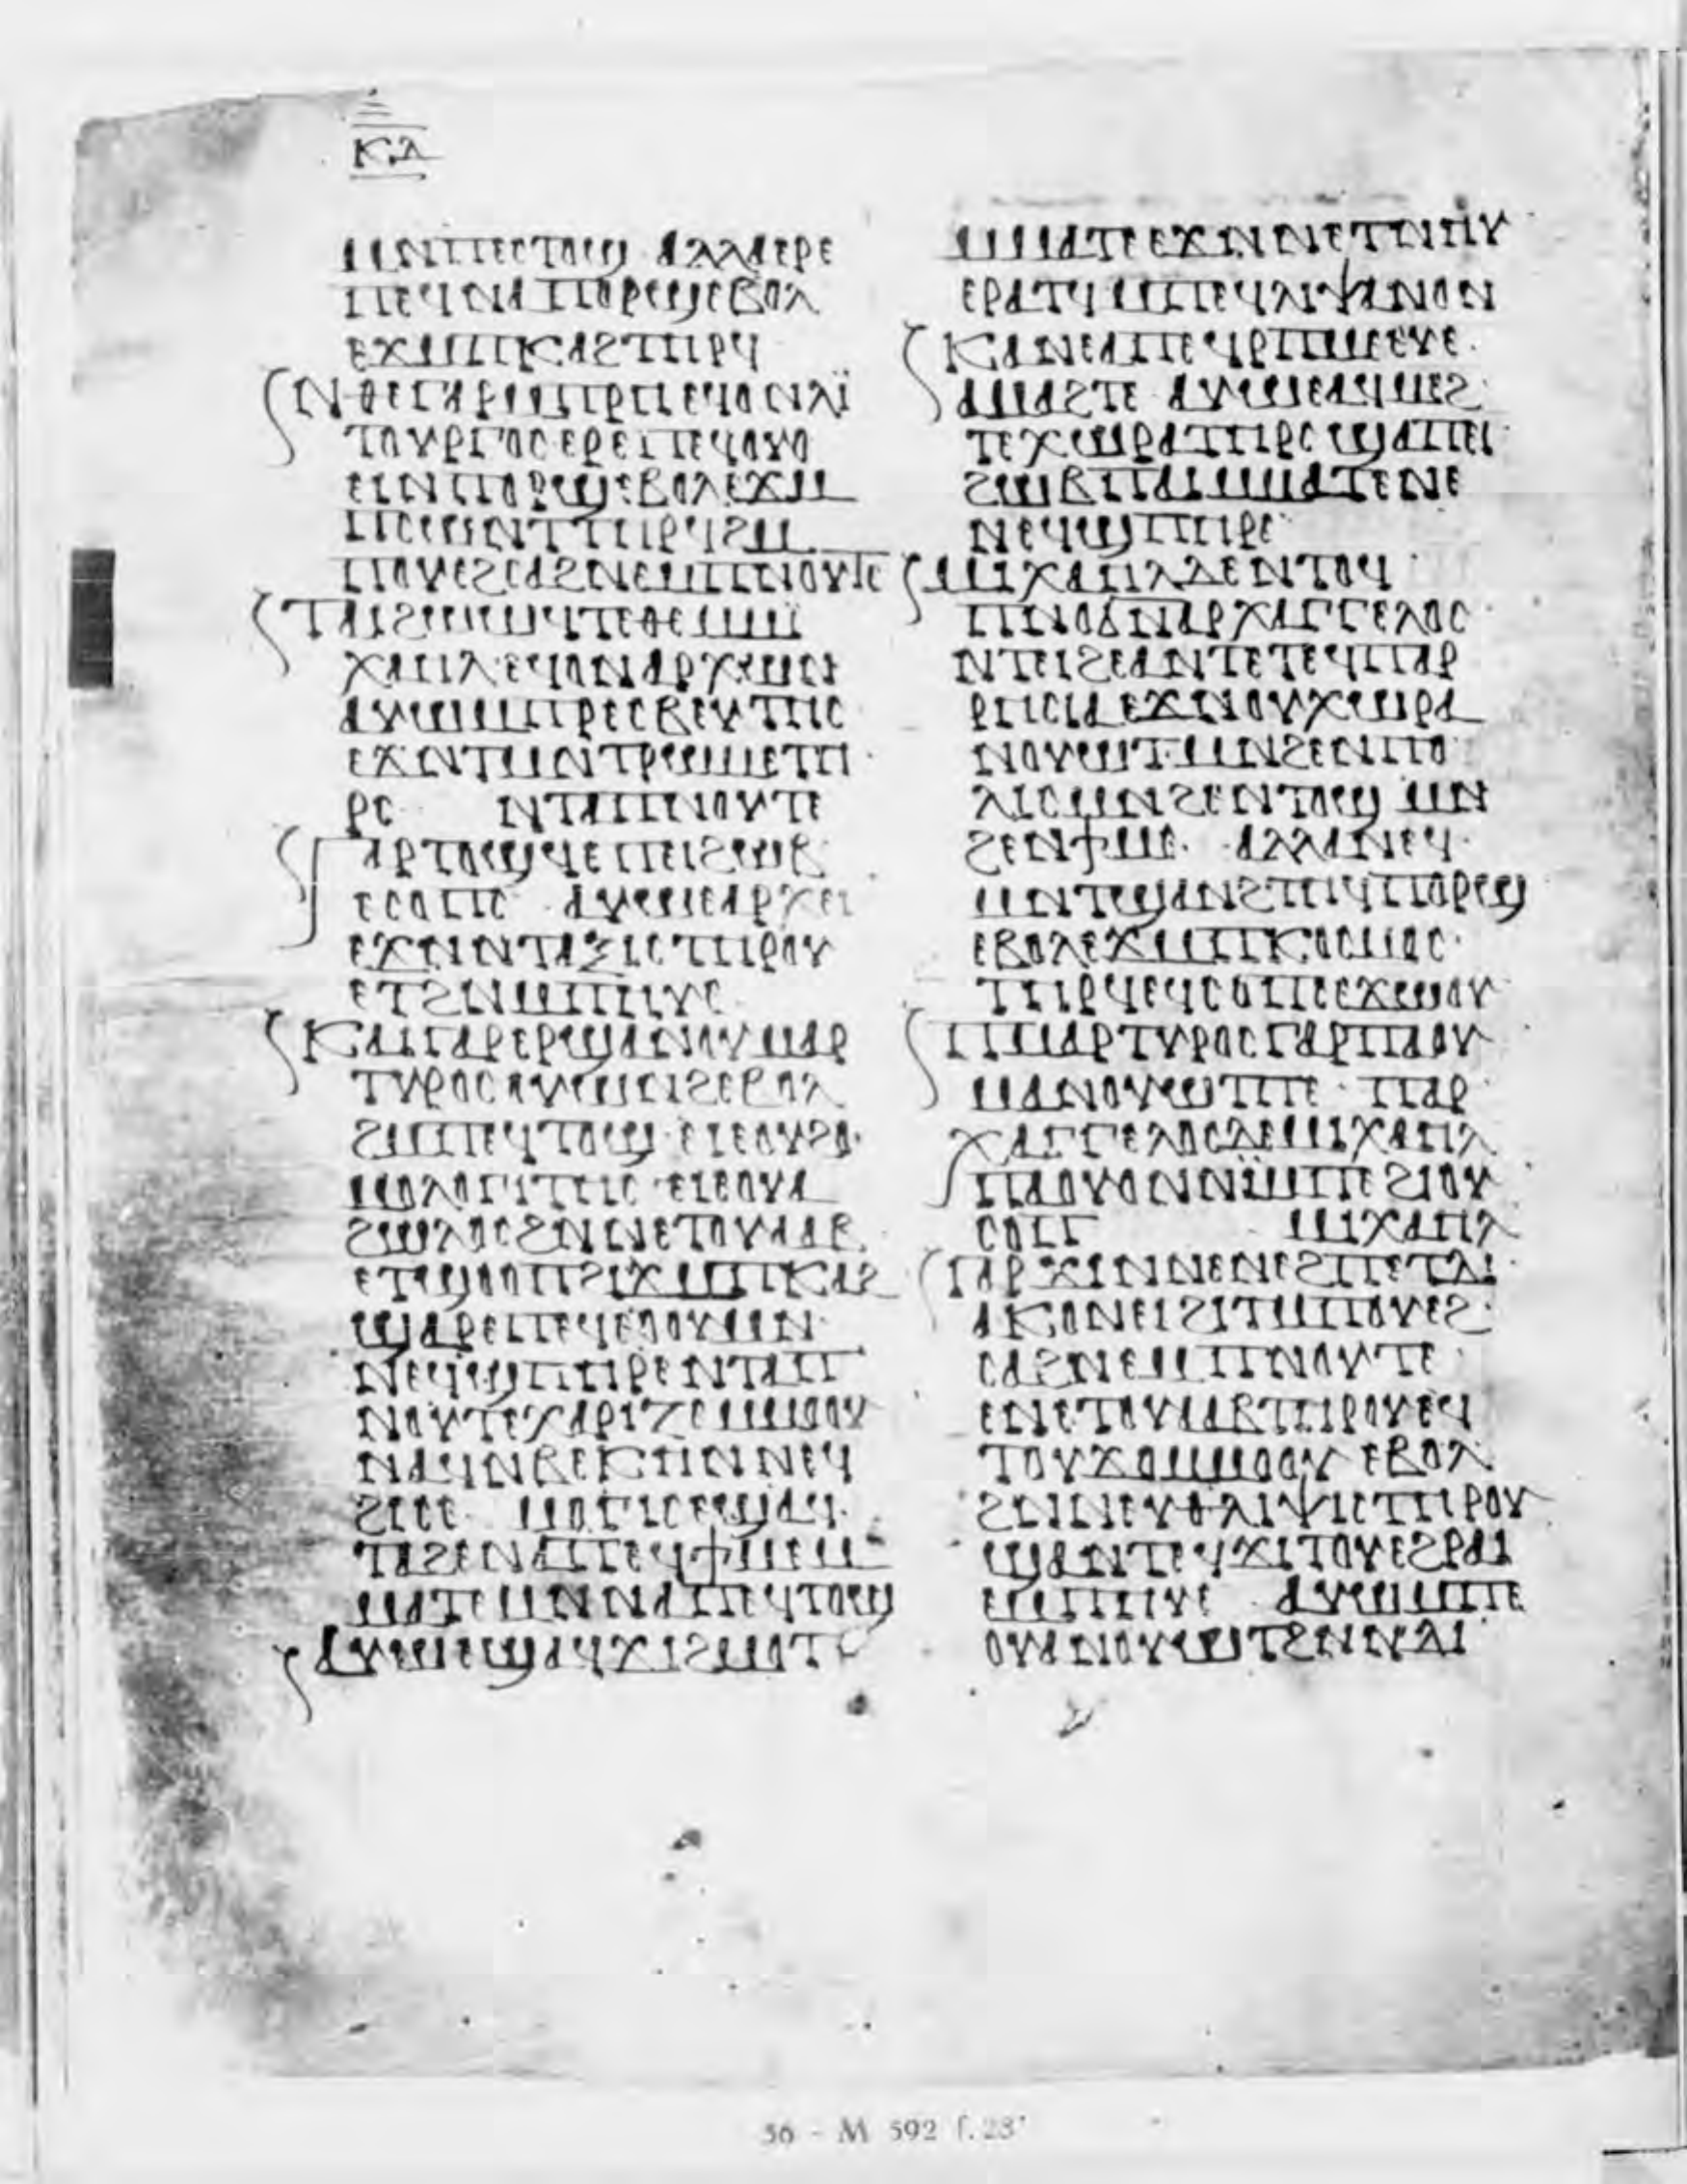 ⲕⲇ
ⲙⲛⲡⲉϥⲧⲟϣ ⲁⲗⲗⲁⲉⲣⲉ
ⲡⲉϥⲛⲁ ⲡⲟⲣϣ ⲉⲃⲟⲗ
ⲉϫⲙⲡⲕⲁϩⲧⲏⲣϥ
ⲛⲑⲉⲅⲁⲣⲙⲡⲣⲏ ⲉϥⲟⲛⲗⲓ̈
ⲧⲟⲩⲣⲅⲟⲥ ⲉⲣⲉⲡⲉϥⲟⲩⲟ
ⲉⲓⲛⲡⲟⲣϣ ⲉⲃⲟⲗⲉϫⲙ
ⲡⲥⲱⲛⲧ ⲧⲏⲣϥϩⲙ
ⲡⲟⲩⲉϩⲥⲁϩⲛⲉⲙⲡⲛⲟⲩⲧⲉ
ⲧⲁⲓϩⲱⲱϥⲧⲉⲑⲉⲙⲙⲓ
ⲭⲁⲏⲗ ⲉϥⲟⲛⲁⲣⲭⲱⲛ
ⲁⲩⲱⲙⲡⲣⲉⲥⲃⲉⲩⲧⲏⲥ
ⲉϫⲛⲧⲙⲛⲧⲣⲱⲙⲉⲧⲏ
ⲣⲥ ⲛⲧⲁⲡⲛⲟⲩⲧⲉ
ⲅⲁⲣⲧⲟϣϥⲉⲡⲉⲓϩⲱⲃ
ⲉⲥⲟⲡⲥ ⲁⲩⲱⲉⲁⲣⲭⲉⲓ
ⲉϫⲛⲛⲧⲁⲝⲓⲥ ⲧⲏⲣⲟⲩ
ⲉⲧϩⲛⲙⲡⲏⲩⲉ
ⲕⲁⲓⲅⲁⲣⲉⲣϣⲁⲛⲟⲩⲙⲁⲣ
ⲧⲩⲣⲟⲥ ⲟⲩⲱⲛϩ ⲉⲃⲟⲗ
ϩⲙⲡⲉϥⲧⲟϣ ⲉⲓⲉⲟⲩϩⲟ
ⲙⲟⲗⲟⲅⲓⲧⲏⲥ ⲉⲓⲉⲟⲩⲁ
ϩⲱⲗⲟⲥϩⲛⲛⲉⲧⲟⲩⲁⲁⲃ
ⲉⲧϣⲟⲟⲡϩⲓϫⲙⲡⲕⲁϩ
ϣⲁⲣⲉⲡⲉϥⲉⲟⲟⲩⲙⲛ
ⲛⲉϥϣⲡⲏⲣⲉ ⲛⲧⲁⲡ
ⲛⲟⲩⲧⲉⲭⲁⲣⲓⲍⲉⲙⲙⲟⲟⲩ
ⲛⲁϥⲛⲃⲉⲕⲏⲛⲛⲉϥ
ϩⲓⲥⲉ ⲙⲟⲅⲓⲥⲉϣⲁϥ
ⲧⲁϩⲉⲛⲁⲡⲉϥϯⲙⲉⲙ
ⲙⲁⲧⲉⲙⲛⲛⲁⲡⲉϥⲧⲟϣ
ⲁⲩⲱⲉϣⲁϥϫⲓϩⲙⲟⲧ
ⲙⲙⲁⲧⲉⲉϫⲛⲛⲉⲧⲛⲏⲩ
ⲉⲣⲁⲧϥⲙⲡⲉϥⲗⲓⲯⲁⲛⲟⲛ
ⲕⲁⲛⲉⲁⲡⲉϥⲣⲡⲙⲉⲉⲩⲉ
ⲁⲙⲁϩⲧⲉ ⲁⲩⲱⲉⲁϥⲙⲉϩ
ⲧⲉⲭⲱⲣⲁⲧⲏⲣⲥϣⲁⲡⲉⲓ
ϩⲱⲃⲡⲁⲓⲙⲙⲁⲧⲉⲛⲉ
ⲛⲉϥϣⲡⲏⲣⲉ
ⲙⲓⲭⲁⲏⲗⲇⲉⲛⲧⲟϥ
ⲡⲛⲟϭⲛⲁⲣⲭⲁⲅⲅⲉⲗⲟⲥ
ⲛⲧⲉⲓϩⲉⲁⲛⲧⲉⲧⲉϥⲡⲁⲣ
ⲣⲏⲥⲓⲁ ⲉϫⲛⲟⲩⲭⲱⲣⲁ
ⲛⲟⲩⲱⲧ ⲙⲛϩⲉⲛⲡⲟ
ⲗⲓⲥⲙⲛϩⲉⲛⲧⲟϣ ⲙⲛ
ϩⲉⲛϯⲙⲉ ⲁⲗⲗⲁⲛⲉϥ
ⲙⲛⲧϣⲁⲛϩⲧⲏϥⲡⲟⲣϣ
ⲉⲃⲟⲗⲉϫⲙⲡⲕⲟⲥⲙⲟⲥ
ⲧⲏⲣϥⲉϥⲥⲟⲡⲥⲉϫⲱⲟⲩ
ⲡⲙⲁⲣⲧⲩⲣⲟⲥⲅⲁⲣⲡⲁⲟⲩ
ⲙⲁⲛⲟⲩⲱⲧⲡⲉ ⲡⲁⲣ
ⲭⲁⲅⲅⲉⲗⲟⲥⲇⲉⲙⲓⲭⲁⲏⲗ
ⲡⲁⲟⲩⲟⲛⲛⲓ̈ⲙⲡⲉ ϩⲓⲟⲩ
ⲥⲟⲡ ⲙⲓⲭⲁⲏⲗ
ⲅⲁⲣ ϫⲓⲛⲛⲉⲛⲉϩⲡⲉⲧⲇⲓ
ⲁⲕⲟⲛⲉⲓϩⲓⲧⲙⲡⲟⲩⲉϩ
ⲥⲁϩⲛⲉⲙⲡⲛⲟⲩⲧⲉ
ⲉⲛⲉⲧⲟⲩⲁⲁⲃⲧⲏⲣⲟⲩⲉϥ
ⲧⲟⲩϫⲟⲙⲙⲟⲟⲩ ⲉⲃⲟⲗ
ϩⲛⲛⲉⲩⲑⲗⲓⲯⲓⲥⲧⲏⲣⲟⲩ
ϣⲁⲛⲧⲉϥϫⲓⲧⲟⲩⲉϩⲣⲁⲓ
ⲉⲙⲡⲏⲩⲉ ⲁⲩⲱⲙⲡⲉ
ⲟⲩⲁⲛⲟⲩⲱⲧϩⲛⲛⲁⲓ
56 - M 592 f. 23ᵛ